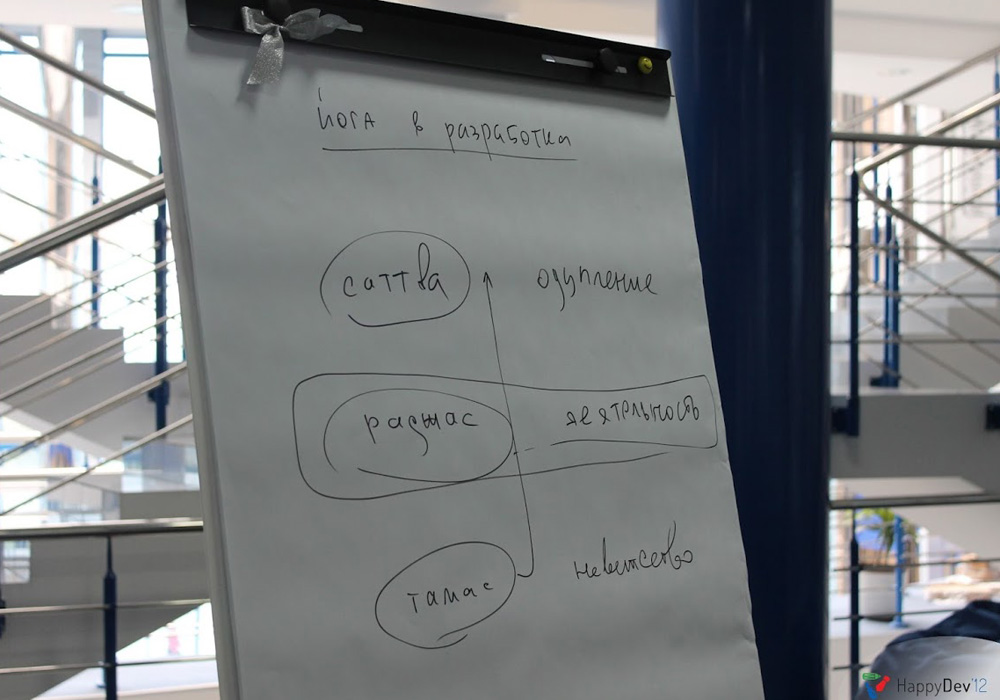 йога в разработка
саттва одупление
раджас деятельность
тамас невежество
HappyDev'12